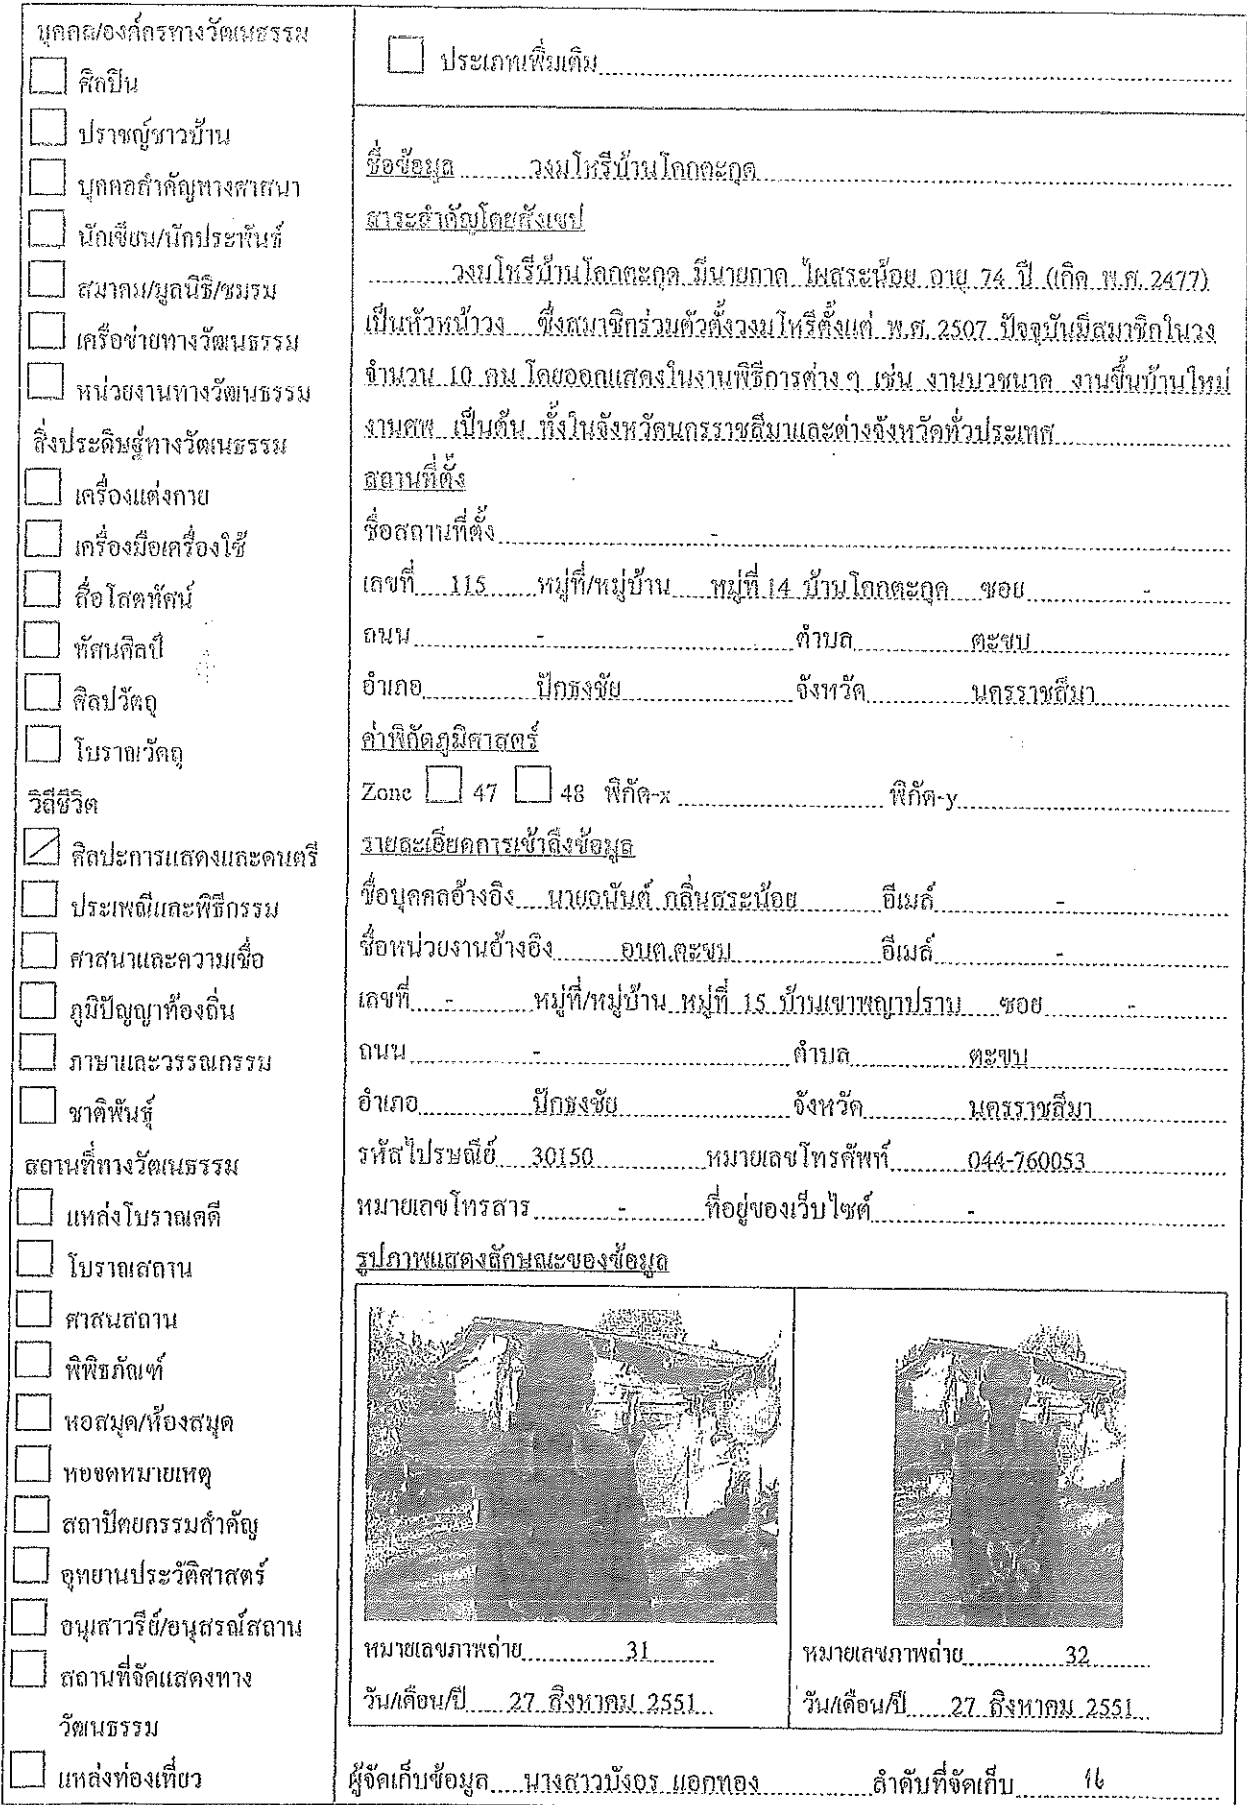 บุคคล/องค์กรทางวัฒนธรรม
ศิลปิน
ปราชญ์ชาวบ้าน
บุคคลสำคัญทางศาสนา
นักเขียน/นักประพันธ์
สมาคม/มูลนิธิ/ชมรม
เครือข่ายทางวัฒนธรรม
หน่วยงานทางวัฒนธรรม
สิ่งประดิษฐ์ทางวัฒนธรรม
เครื่องแต่งกาย
เครื่องมือเครื่องใช้
สื่อโสตทัศน์
ทัศนศิลป์
ศิลปวัตถุ
โบราณวัตถุ
วิถีชีวิต
ศิลปะการแสดงและดนตรี
ประเพณีและพิธีกรรม
ศาสนาและความเชื่อ
ภูมิปัญญาท้องถิ่น
ภาษาและวรรณกรรม
ชาติพันธุ์
สถานที่ทางวัฒนธรรม
แหล่งโบราณคดี
โบราณสถาน
ศาสนสถาน
พิพิธภัณฑ์
หอสมุด/ห้องสมุด
หอจดหมายเหตุ
สถาปัตยกรรมสำคัญ
อุทยานประวัติศาสตร์
อนุเสาวรีย์/อนุสรณ์สถาน
สถานที่จัดแสดงทาง
วัฒนธรรม
แหล่งท่องเที่ยว
ประเภทเพิ่มเติม
ชื่อข้อมูล วงมโหรีบ้านโคกตะกุด
สาระสำคัญโดยสังเขป
วงมโหรีบ้านโคกตะกุด มีนายกาด ไผสระน้อย อายุ 74 ปี (เกิด พ.ศ. 2477)
เป็นหัวหน้าวง ซึ่งสมาชิกร่วมตัวตั้งวงมโหรีตั้งแต่ พ.ศ. 2507 ปัจจุบันมีสมาชิกในวง
จำนวน 10 คน โดยออกแสดงในงานพิธีการต่าง ๆ เช่น งานบวชนาค งานขึ้นบ้านใหม่
งานศพ เป็นต้น ทั้งในจังหวัดนครราชสีมาและต่างจังหวัดทั่วประเทศ
สถานที่ตั้ง
ชื่อสถานที่ตั้ง -
เลขที่ 115 หมู่ที่/หมู่บ้าน หมู่ที่ 14 บ้านโคกตะกุด ซอย -
ถนน - ตำบล ตะขบ
อำเภอ ปักธงชัย จังหวัด นครราชสีมา
ค่าพิกัดภูมิศาสตร์
Zone 47 48 พิกัด-x พิกัด-y
รายละเอียดการเข้าถึงข้อมูล
ชื่อบุคคลอ้างอิง นายอนันต์ กลิ่นสระน้อย อีเมล์ -
ชื่อหน่วยงานอ้างอิง อบต.ตะขบ อีเมล์ -
เลขที่ - หมู่ที่/หมู่บ้าน หมู่ที่ 15 บ้านเขาพญาปราบ ซอย -
ถนน - ตำบล ตะขบ
อำเภอ ปักธงชัย จังหวัด นครราชสีมา
รหัสไปรษณีย์ 30150 หมายเลขโทรศัพท์ 044-760053
หมายเลขโทรสาร - ที่อยู่ของเว็บไซต์ -
รูปภาพแสดงลักษณะของข้อมูล
หมายเลขภาพถ่าย 31
วัน/เดือน/ปี 27 สิงหาคม 2551
หมายเลขภาพถ่าย 32
วัน/เดือน/ปี 27 สิงหาคม 2551
ผู้จัดเก็บข้อมูล นางสาวบังอร แอกทอง ลำดับที่จัดเก็บ 16